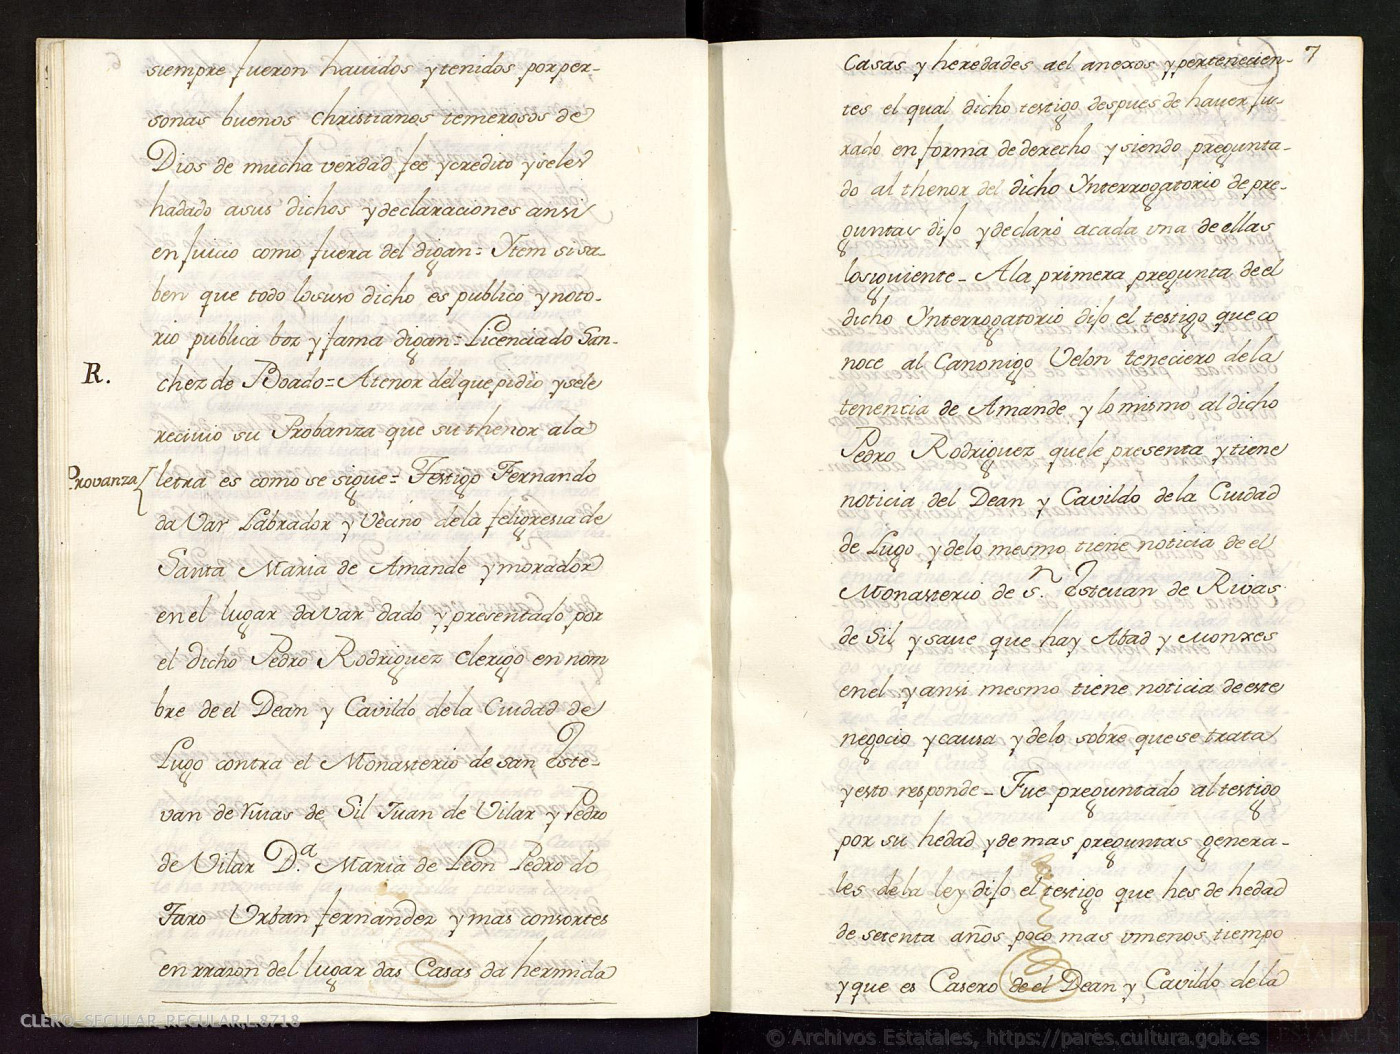 siempre fueron hauidos y tenidos por per-
sonas buenos christianos temerosos de
Dios de mucha verdad fee y credito y seles
hadado asus dichos y declaraciones ansi
en juicio como fuera del digan= Ytem si sa-
ben que todo losuso dicho es publico y noto-
rio publica boz y fama digan= Licenciado San-
R.
chez de Boado= Atenor del que pidio y sele
recivio su Probanza que su thenor ala
Provanza
letra es como se sigue= Testigo Fernando
da Var Labrador y Vecino dela feligresia de
Santa Maria de Amande y morador
en el lugar da Var dado y presentado por
el dicho Pedro Rodriguez Clerigo en nom
bre de el Dean y Cavildo dela Ciudad de
Lugo contra el Monasterio de san Este-
van de Rivas de Sil Juan de Vilar y Pedro
de Vilar D.ª Maria de Leon Pedro do
Faro Urban fernandez y mas consortes
en rrazon del lugar das Casas da hermida
7
Casas y heredades ael anexos y pertenecien-
tes el qual dicho testigo despues de haver ju-
rado en forma de derecho y siendo pregunta-
do al thenor del dicho Ynterrogatorio de pre-
guntas dijo y declaró acada una de ellas
lo siguiente- Ala primera pregunta de el
dicho Ynterrogatorio dijo el testigo que co
noce al Canonigo Velon teneciero dela
tenencia de Amande y lo mismo al dicho
Pedro Rodriguez quele presenta y tiene
noticia del Dean y Cavildo dela Ciudad
de Lugo y delo mesmo tiene noticia de el
Monasterio de S.n Estevan de Rivas
de Sil y save que hay Abad y Monxes
enel y ansi mesmo tiene noticia de este
negocio y causa y delo sobre que se trata
y esto responde- Fue preguntado al testigo
por su hedad y de mas preguntas genera-
les dela ley dijo el testigo que hes de hedad
de setenta años poco mas vmenos tiempo
y que es Casero de el Dean y Cavildo dela
CLERO_SECULAR_REGULAR,L.8718
© Archivos Estatales, https://pares.cultura.gob.es
ARCHIVOS
ESTATALES